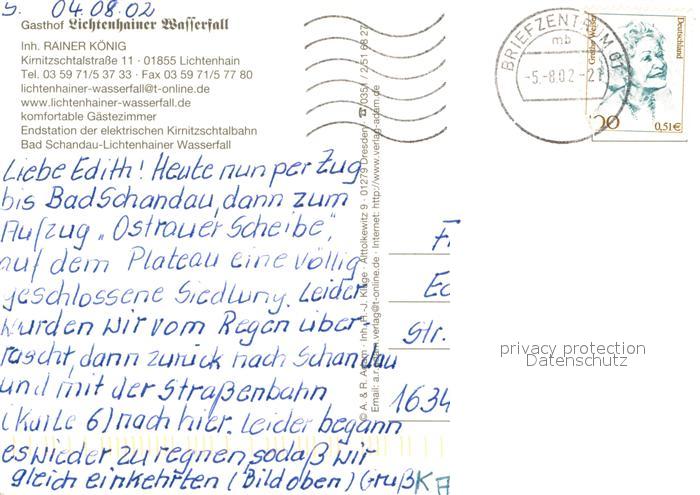 S. 04.08.02
Gasthof Lichtenhainer Wasserfall
Inh. RAINER KÖNIG
Kirnitzschtalstraße 11 · 01855 Lichtenhain
Tel. 03 59 71/5 37 33 · Fax 03 59 71/5 77 80
lichtenhainer-wasserfall@t-online.de
www.lichtenhainer-wasserfall.de
komfortable Gästezimmer
Endstation der elektrischen Kirnitzschtalbahn
Bad Schandau-Lichtenhainer Wasserfall
Liebe Edith! Heute nun per Zug
bis Bad Schandau, dann zum
Aufzug „Ostrauer Scheibe",
auf dem Plateau eine völlig
geschlossene Siedlung. Leider
wurden wir vom Regen über
rascht, dann zurück nach Schandau
und mit der Straßenbahn
(Karte 6) nach hier. Leider begann
es wieder zu regnen, sodaß wir
gleich einkehrten (Bild oben) Gruß K
© A. & R. Adam · Inh. H.-J. Kluge · Alttolkewitz 9 · 01279 Dresden ☎ 0351 / 2 51 66 27
Email: a.r.adam.verlag@t-online.de · Internet: http://www.verlag-adam.de
BRIEFZENTRUM 01
mb
-5.-8.02-21
Grethe Weiser
Deutschland
100
0,51€
Fr
Ec
Str.
1634
privacy protection
Datenschutz